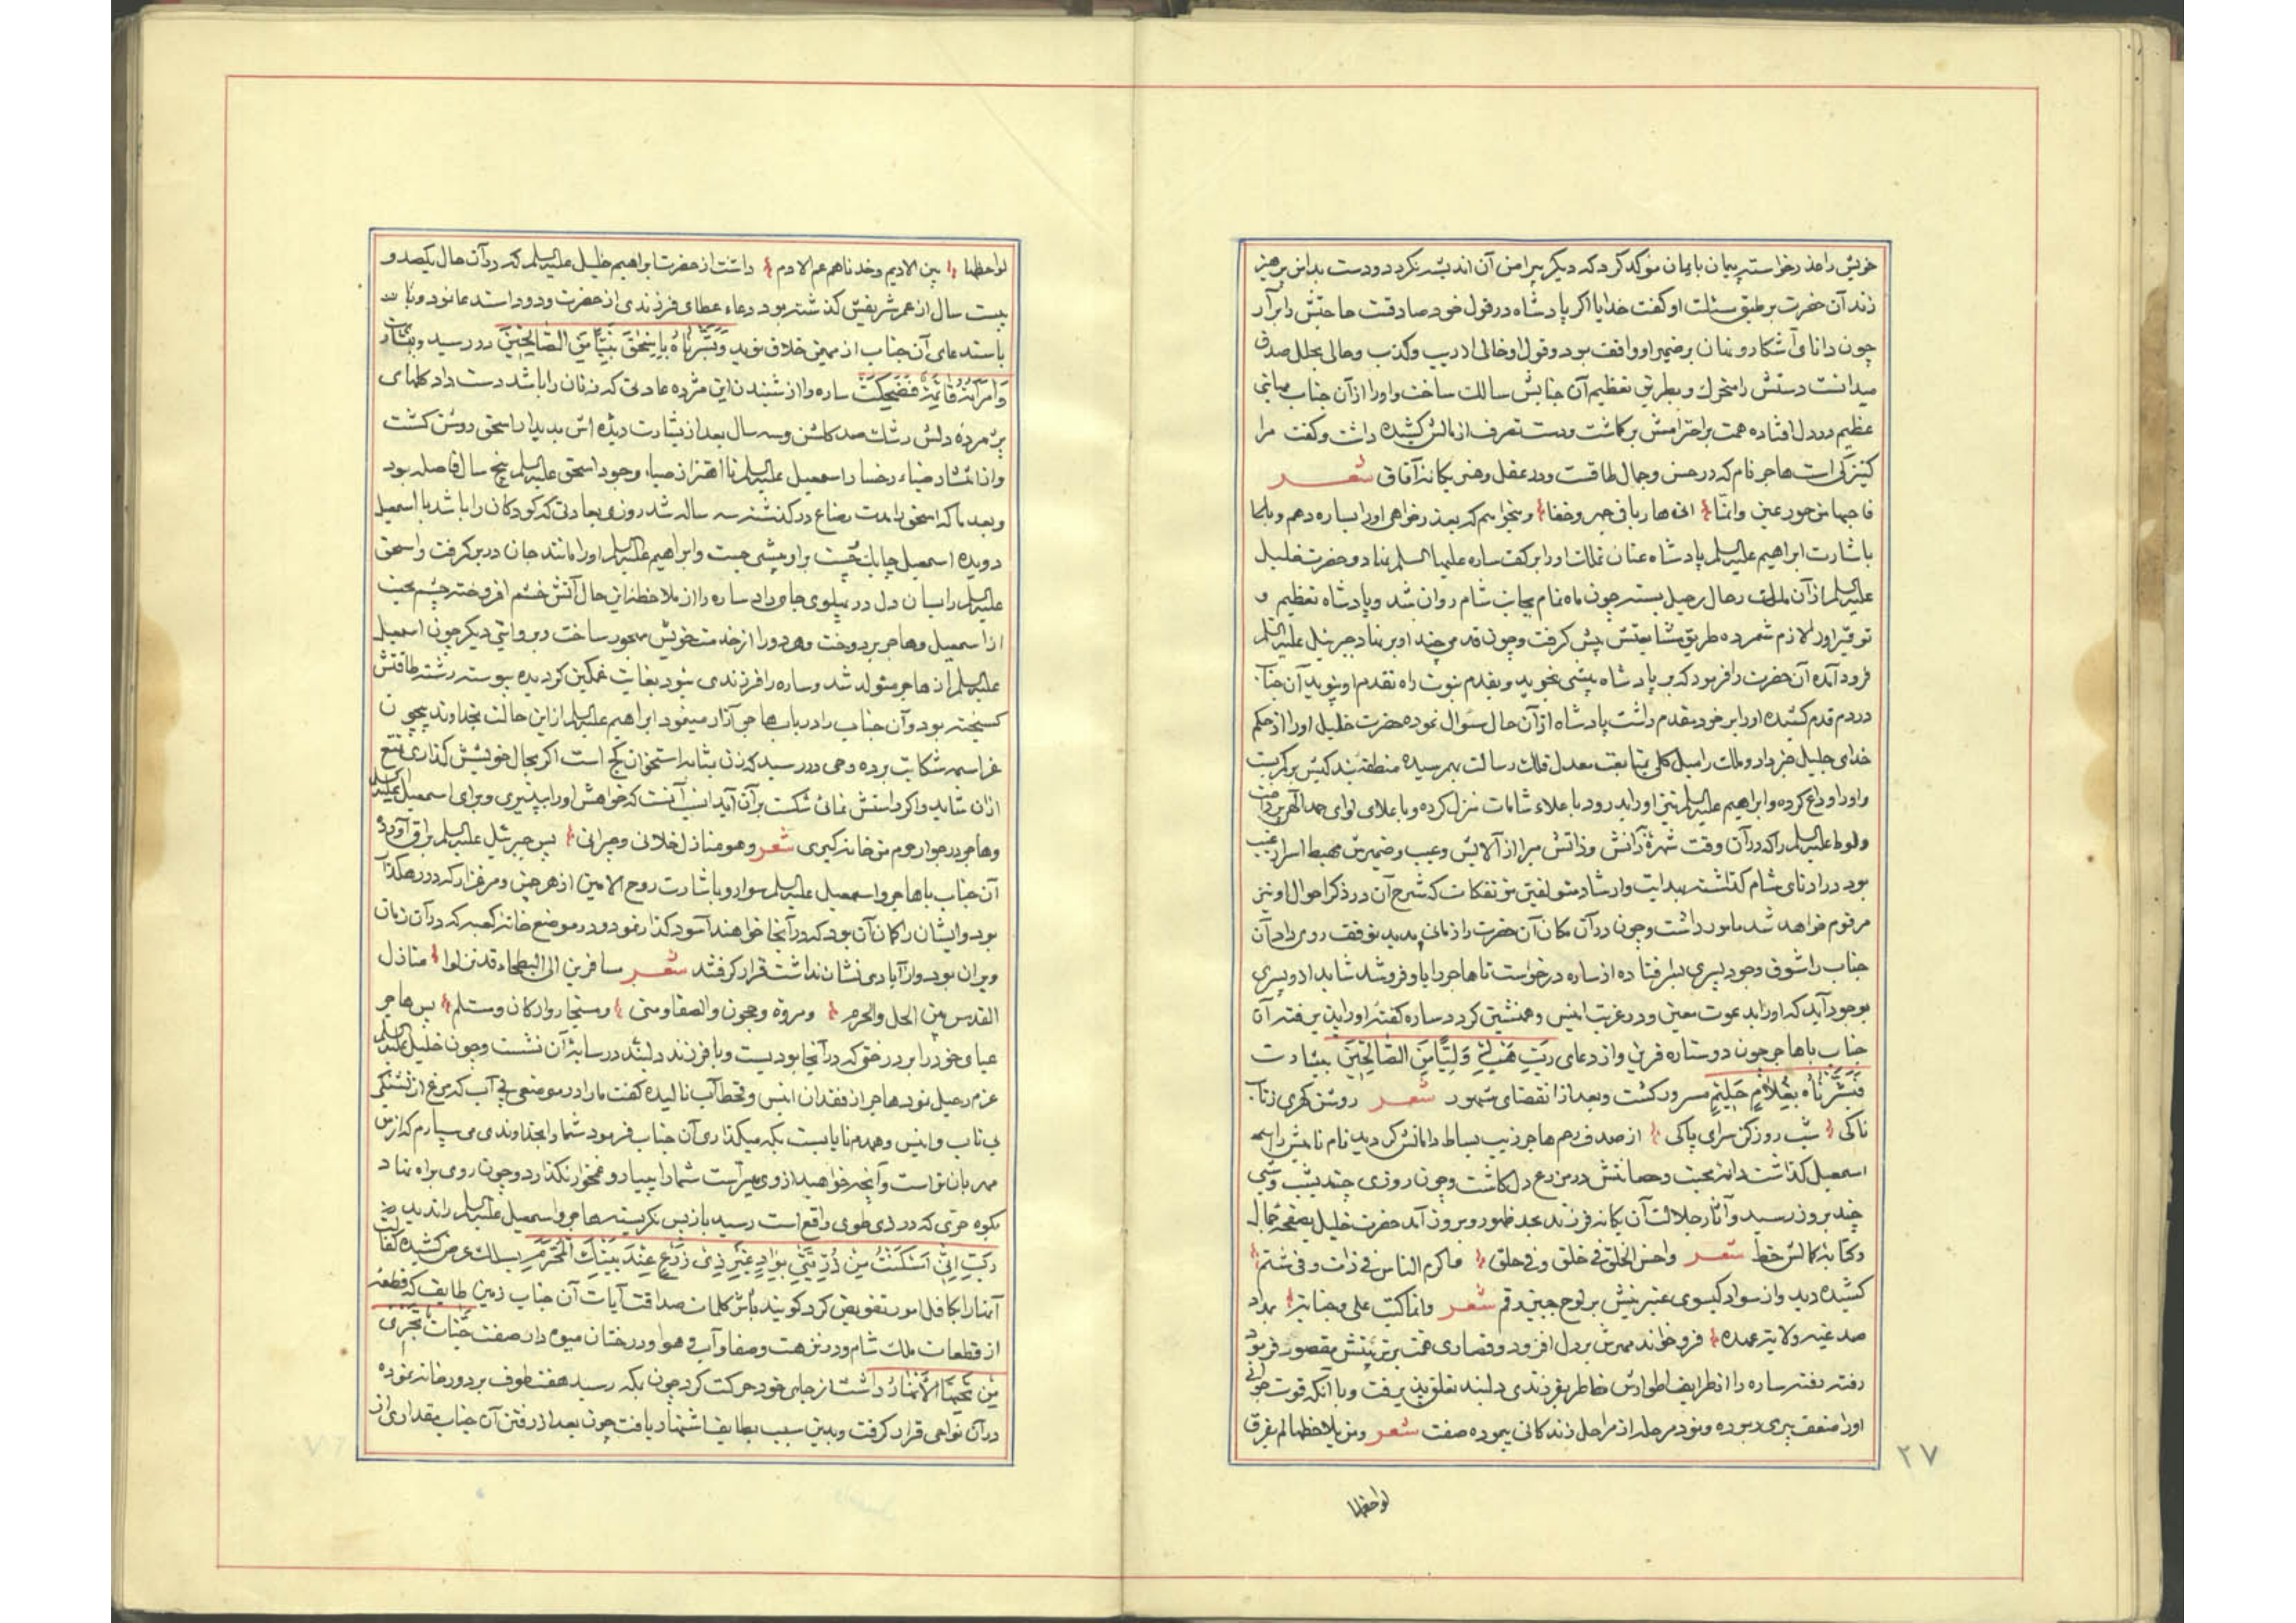 خویش را عذر خواسته پیمان بایمان موکد کرد که دیگر پیرامن آن اندیشه نکردد و دست بدامن پرهیز
زند آن حضرت بر طبق مسئلت او گفت خدایا اگر پادشاه در قول خود صادقست حاجتش را برآر
چون دانای آشکار و نهان بر ضمیر او واقف بود و قول او خالی از ریب و کذب و حالی بحلل صدق
میدانست دستش را متحرک و بطریق تعظیم آن جنابش سالک ساخت و او را از آن جناب مهابتی
عظیم در دل افتاده همت بر احترامش برکماشت و دست تصرف از مالش کشیده داشت و گفت مرا
کنیزکی است هاجر نام که در حسن و جمال طاقست و در عقل و هنر یکانه آفاق شعر
فاجبها من حور عین وانما و میخواهم که بعذرخواهی او را بساره دهم و بایما
باشارت ابراهیم علیه السلم پادشاه عنان تملک او را بر کف ساره علیها السلم نهاد و حضرت خلیل
علیه السلم از آن ملک رحال رحیل بسته چون ماه تمام بجانب شام روان شد و پادشاه تعظیم و
توقیر او را لازم شمرده طریق مشایعتش پیش گرفت و چون قدمی چند او بر نهاد جبرئیل علیه السلم
فرود آمده آن حضرت را فرمود که بر پادشاه پیشی نجوید و بقدم نبوت راه تقدم او نپوید آن جناب
در دم قدم کشیده او را بر خود مقدم داشت پادشاه از آن حال سؤال نموده حضرت خلیل او را از حکم
خدای جلیل خبر داد و ملک را میل کلی بمتابعت معدل فلک رسالت بهم رسیده منطقه بندکیش بر کمر بست
و او را وداع کرده و ابراهیم علیه السلم نیز او را بدرود باعلاء شامات نزل کرده و با علای لوای حمد الهی پرداخت
و لوط علیه السلم را که در آن وقت شهره دانش و ذاتش مبرا از آلایش و عیب و ضمیرش مهبط اسرار غیب
بود در ادنای شام گذاشته بهدایت و ارشاد متولفین مؤتفکات که شرح آن در ذکر احوال او نیز
مرقوم خواهد شد مامور داشت و چون در آن مکان آن حضرت را زمانی مدید توقف روی داد آن
جناب را شوق وجود پسری بسر افتاده از ساره درخواست تا هاجر را باو فروشد شاید از او پسری
بوجود آید که او را بدعوت معین و در غربت انیس و همنشین کردد ساره گفته او را پذیرفته آن
جناب با هاجر چون دو ستاره قرین و از دعای رَبِّ هَبْ لِی وَلِیًّا مِنَ الصّالِحینَ ببشارت
فَبَشَّرْناهُ بِغُلامٍ حَلیمٍ مسرور کشت و بعد از انقضای شهور شعر روشن کهری ز تاب
ناکی شب روز کن سرای پاکی از صدف رحم هاجر زیب بساط دامانش کردید نام نامیش را اسم
اسمعیل گذاشت دانه محبت و حصانتش در مزرع دل کاشت و چون روزی چند بشب و شبی
چند بروز رسید و آثار جلالت آن یکانه فرزند بحد ظهور و بروز آمد حضرت خلیل بصفحه جمال
و کتابه کمالش خط شعر واحسن الخلق فی خلق وفی خلق فاکرم الناس فی ذات وفی شیم
کشیده دید و از سواد کیسوی عنبرینش بر لوح جبین رقم شعر وانما کتبت علی وجناته بمداد
فرو خواند مهرش بر دل افزود و قصارای همت بر تربیتش مقصور فرمود
رفته رفته ساره را از ظرایف اطوارش خاطر بفرزندی دلبند تعلق پذیرفت و با آنکه قوت جوانی
او را ضعف پیری ربوده و نود مرحله از مراحل زندکانی پیموده صفت شعر ومن یلاحظها لم یفرق
۲۷
لواحظها
لواحظها بین الادیم داشت از حضرت ابراهیم خلیل علیه السلم که در آن حال یکصد و
بیست سال از عمر شریفش گذشته بود دعاء عطای فرزندی از حضرت ودود استدعا نمود و بنا بر
باستدعای آن جناب از مهین خلاق نوید وَبَشَّرْناهُ بِاِسْحقَ نَبِیًّا مِنَ الصّالِحینَ در رسید و بشارت
وَامْرَأَتُهُ قائِمَةٌ فَضَحِکَتْ ساره را از شنیدن این مژده عادتی که زنان را باشد دست داد کلهای
پژمرده دلش رشک صد کلشن و سه سال بعد از بشارت دیده اش بدیدار اسحق روشن کشت
و از ضیاء رخسار اسمعیل علیه السلم وجود اسحق علیه السلم پنج سال فاصله بود
و بعد ما که اسحق را مدت رضاع در گذشته سه ساله شد روزی بعادتی که کودکان را باشد با اسمعیل
دویده اسمعیل چابک چست بر او پیشی جست و ابراهیم علیه السلم او را مانند جان در بر گرفت و اسحق
علیه السلم را بسان دل در پهلوی جای داد ساره را از ملاحظه این حال آتش خشم افروخته چشم محبت
از اسمعیل و هاجر بردوخت و هر دو را از خدمت خویش مهجور ساخت و بروایتی دیکر چون اسمعیل
علیه السلم از هاجر متولد شد و ساره را فرزندی نبود بغایت غمکین کردیده پیوسته رشته طاقتش
کسیخته بود و آن جناب را در باب هاجر آزار مینمود ابراهیم علیه السلم از این حالت بخداوند بیچون
عز اسمه شکایت برده وحی در رسید که زن بمثابه استخوان کج است اکر بحال خویش گذاری تمتع
از آن شاید و اکر راستش نمائی شکست بر آن آید انسب آنست که خواهش او را بپذیری و برای اسمعیل علیه السلم
و هاجر در جوار حرم من خانه گیری شعر وهو منازل اخلانی وجیرانی پس جبرئیل علیه السلم براق آورده
آن جناب با هاجر و اسمعیل علیه السلم سوار و باشارت روح الامین از هر چمن و مرغزار که در رهگذار
بود و ایشان را کمان آن بود که در آنجا خواهند آسود گذار نمود و در موضع خانه کعبه که در آن زمان
ویران بود و از آبادی نشان نداشت قرار گرفتند شعر مسافرین الی البطحاء قد نزلوا منازل
القدس بین الحل والحرم ومروة وحجون والصفا ومنی ومستجار وارکان ومستلم پس هاجر
عبای خود را بر درختی که در آنجا بود بست و با فرزند دلبند در سایه آن نشست و چون خلیل علیه السلم
عزم رحیل نمود هاجر از فقدان انیس و قحط آب نالیده گفت ما را در موضعی بی آب که مرغ از تشنکی
بی تاب و انیس و همدم نایابست بکه میگذاری آن جناب فرمود شما را بخداوندی می سپارم که از من
مهربان تر است و آنچه خواهید از وی میسر است شما را بی یار و غمخوار نگذارد و چون روی براه نهاد
بکوه حری که در ذی طوی واقع است رسید باز پس نکریسته هاجر و اسمعیل علیه السلم را ندید
رَبَّنا اِنّی اَسْکَنْتُ مِنْ ذُرِّیَّتی بِوادٍ غَیْرِ ذی زَرْعٍ عِنْدَ بَیْتِکَ الْمُحَرَّمِ بسلک عرض کشیده کفالت
آنها را بکافل امور تفویض کرد کویند باثر کلمات صداقت آیات آن جناب زمین طایف که قطعه
از قطعات ملک شام و در نزهت و صفا و آب و هوا و درختان میوه دار صفت جَنّاتٍ تَجْری
مِنْ تَحْتِهَا الْاَنْهارُ داشت از جای خود حرکت کرد چون بمکه رسید هفت طوف بر دور خانه نموده
در آن نواحی قرار گرفت و بدین سبب بطایف اشتهار یافت چون بعد از رفتن آن جناب مقداری از